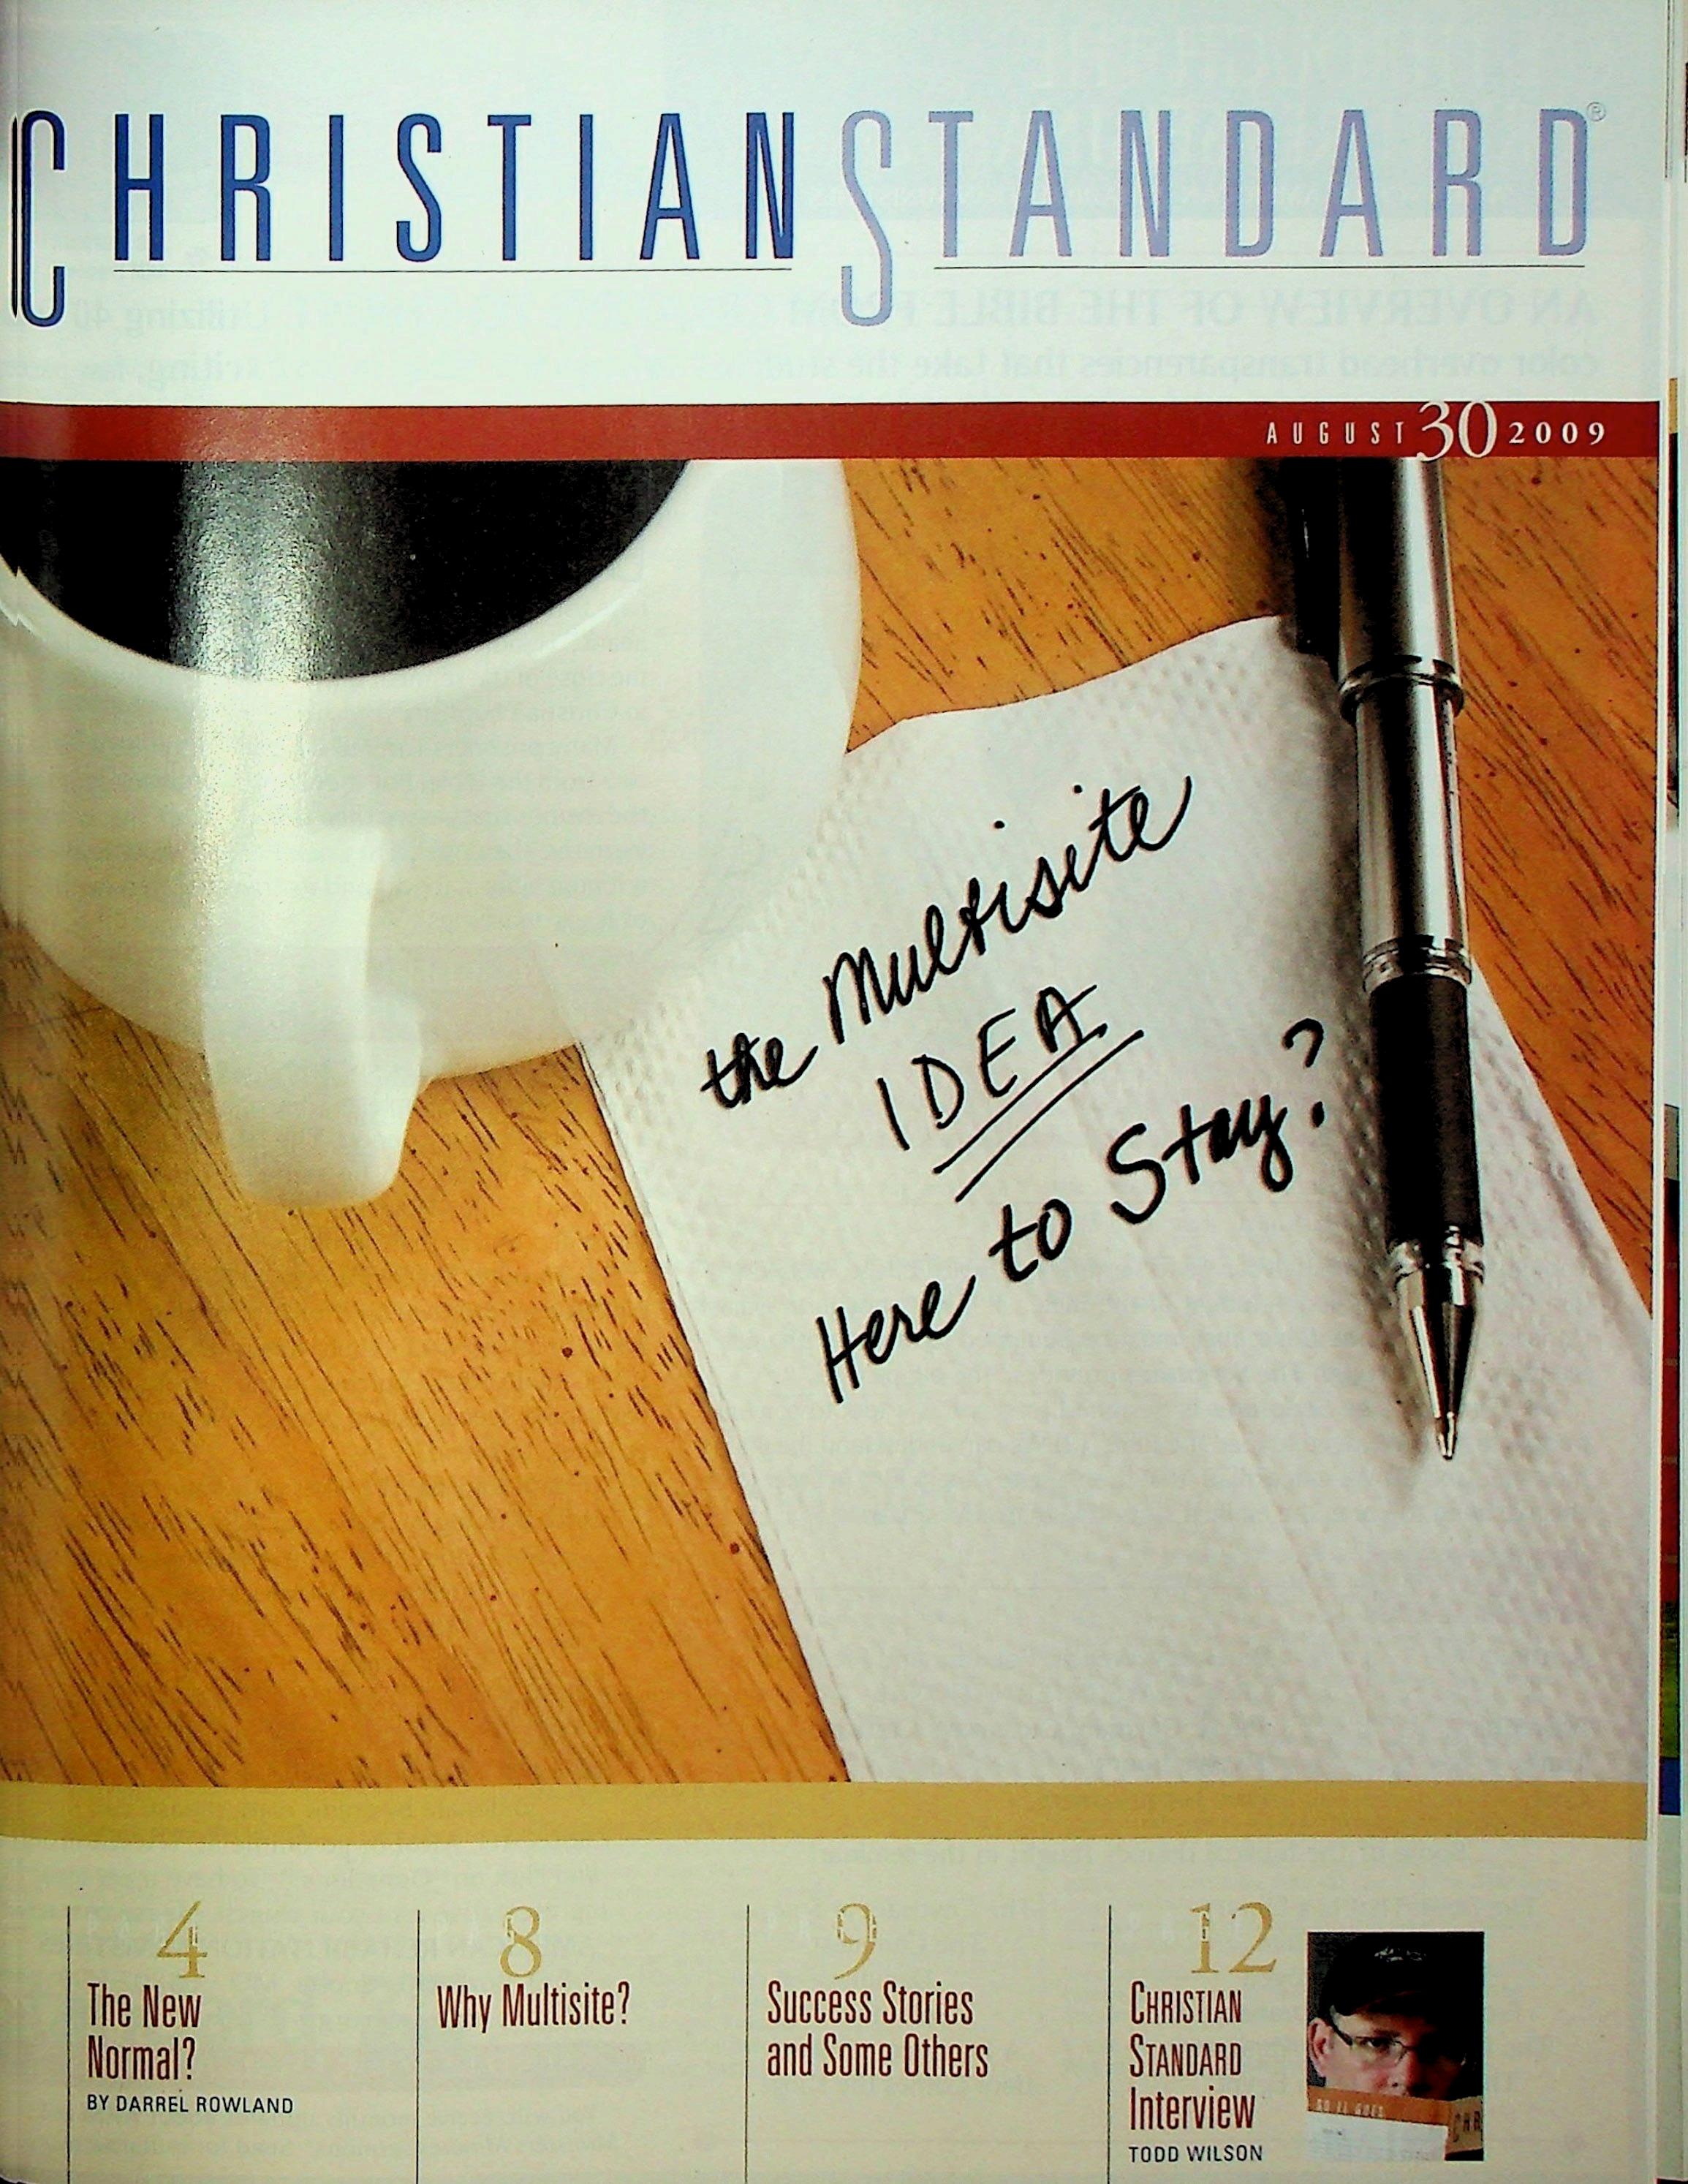 CHRISTIAN STANDARD®
AUGUST 30 2009
the Multisite
IDEA
Here to Stay?
4
The New
Normal?
BY DARREL ROWLAND
8
Why Multisite?
9
Success Stories
and Some Others
12
CHRISTIAN
STANDARD
Interview
TODD WILSON
SO IT GOES
CHR